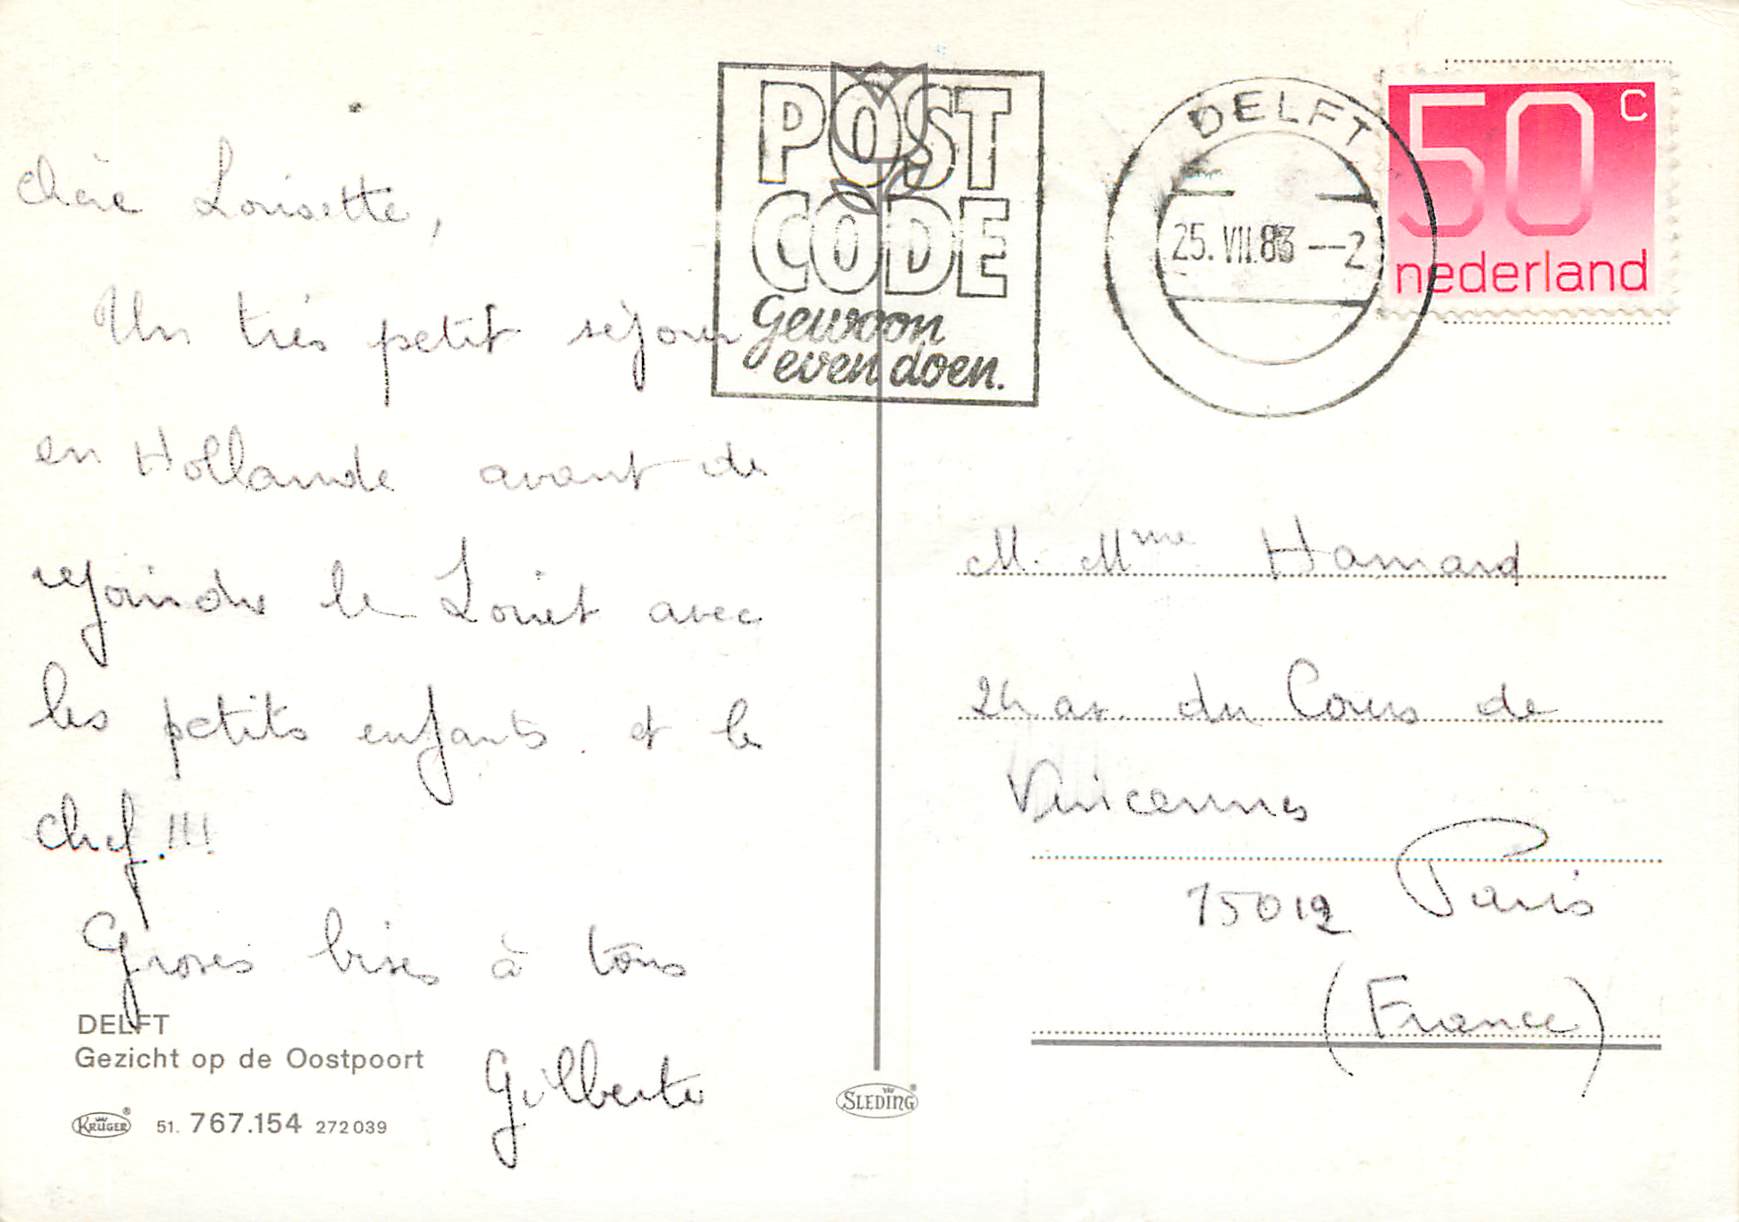 chère Louisette,
Un très petit séjour
en Hollande avant de
rejoindre le Loiret avec
les petits enfants et le
chef !!!
Groses bises à tous
Gilberte
DELFT
Gezicht op de Oostpoort
KRÜGER® 51. 767.154 272039
POST
CODE
Gewoon
even doen.
DELFT
25.VII.83 — 2
50 c
nederland
M. Mme Hamard
24 av. du Cours de
Vincennes
75012 Paris
(France)
SLEDING®